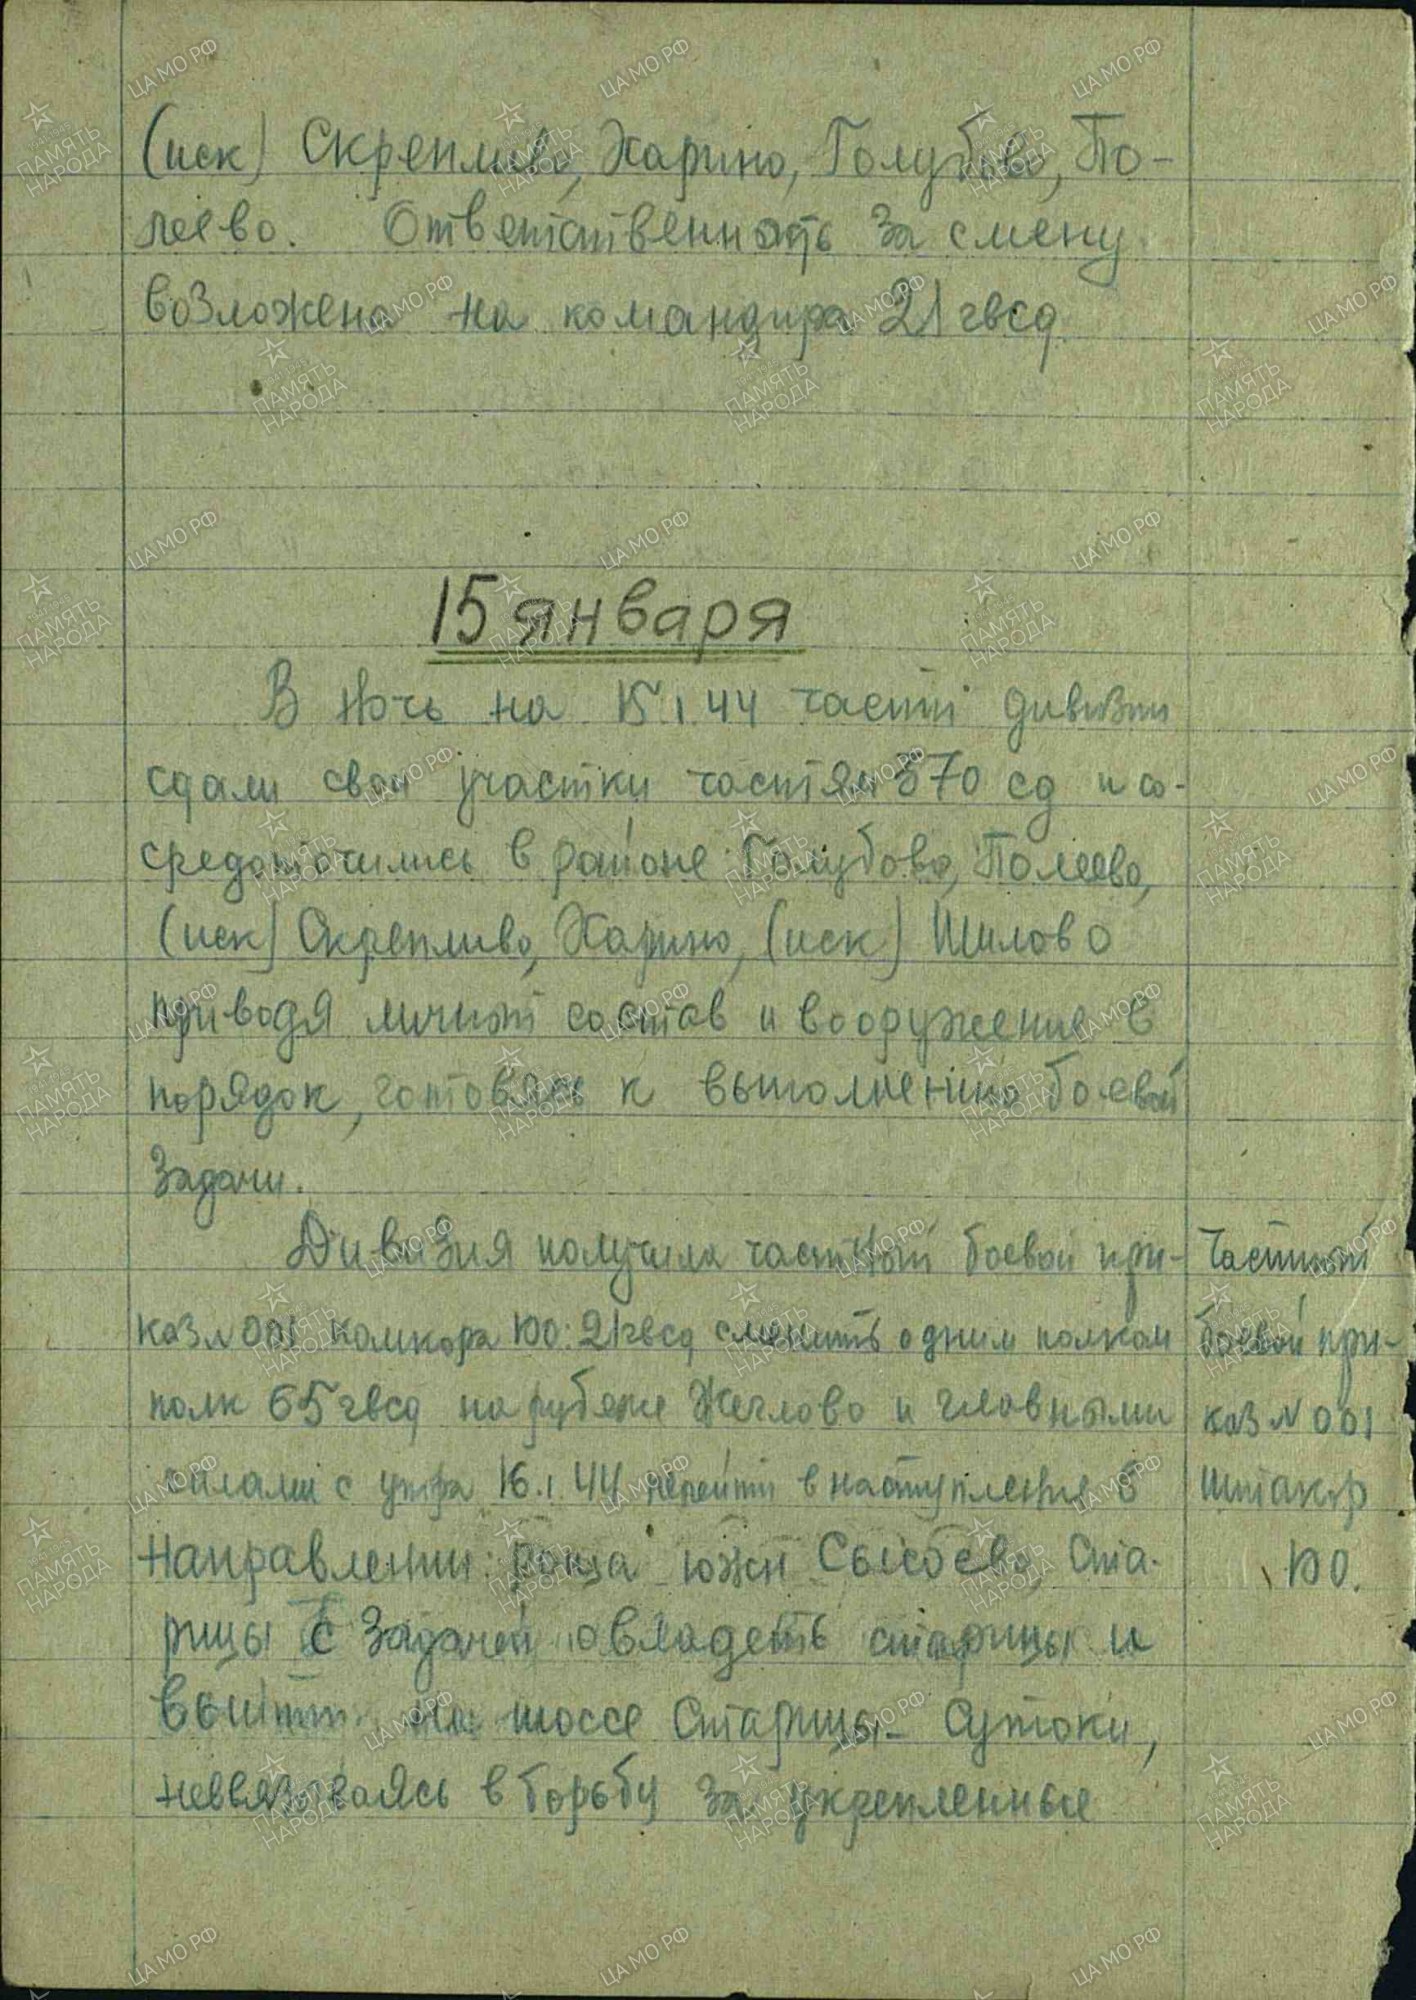 (иск) Скреплево, Харино, Голубово, По-
леево. Ответственность за смену
возложена на командира 21 гвсд
15 января
В ночь на 15.1.44 части дивизии
сдали свои участки частям 370 сд и со-
средоточились в районе: Голубово, Полеево,
(иск) Скреплево, Харино, (иск) Шилово
приводя личный состав и вооружение в
порядок, готовясь к выполнению боевой
задачи.
Дивизия получила частный боевой при-
каз №001 комкора 100: 21 гвсд сменить одним полком
полк 65 гвсд на рубеже Жеглово и главными
силами с утра 16.1.44 перейти в наступление в
направлении: роща южн Сысоево, Ста-
рицы с задачей овладеть старицы и
выйти на шоссе Старицы - Сутоки,
неввязываясь в борьбу за укрепленные
Частный
боевой при-
каз №001
штакор
100.
ЦА МО РФ
ПАМЯТЬ
НАРОДА
1941-1945